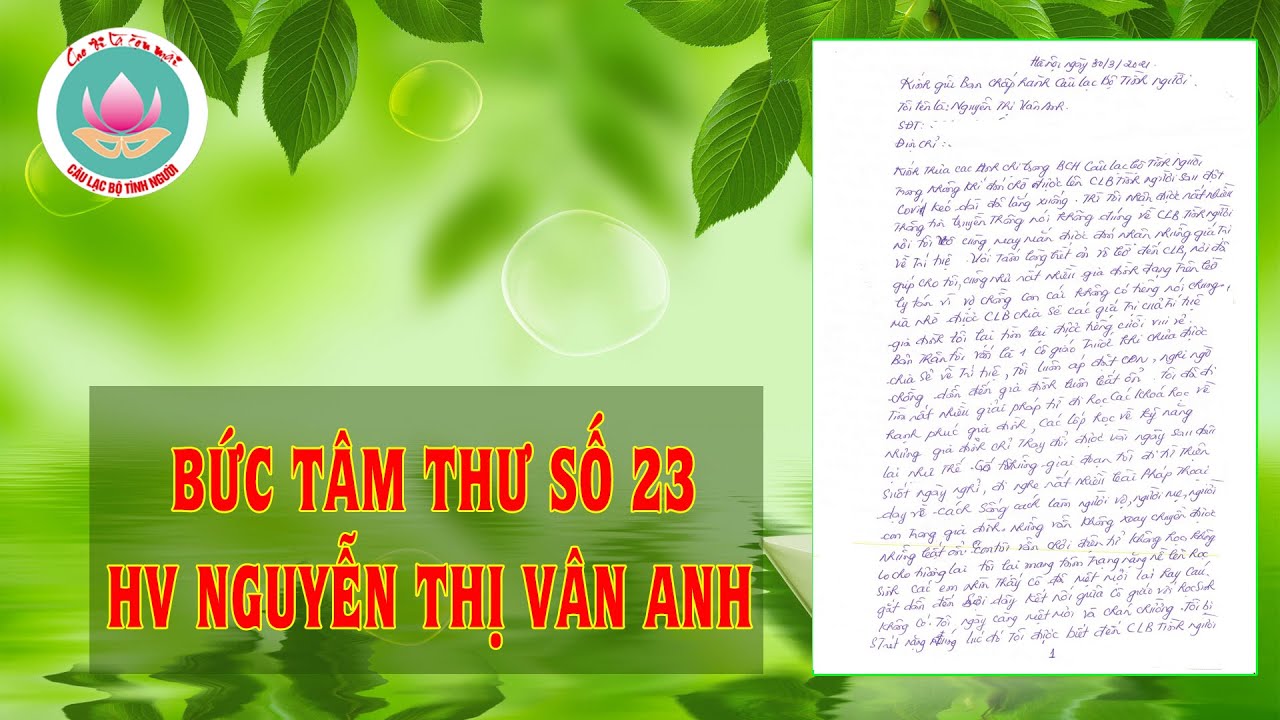 Cao quý là con người
CÂU LẠC BỘ TÌNH NGƯỜI
BỨC TÂM THƯ SỐ 23
HV NGUYỄN THỊ VÂN ANH
Hà Nội, ngày 30/3/2021.
Kính gửi Ban chấp hành Câu lạc Bộ Tình người.
Tôi tên là: Nguyễn Thị Vân Anh.
SĐT:
Địa chỉ:
Kính thưa các Anh chị trong BCH Câu lạc bộ Tình Người
trong những khi đón chờ được lên CLB Tình người sau đợt
Covid kéo dài đã lắng xuống. Thì tôi nhận được rất nhiều
thông tin truyền thông nói không đúng về CLB Tình người
nơi tôi vô cùng may mắn được đón nhận những giá trị
về Trí tuệ. Với tấm lòng biết ơn tới CLB, nơi đã
giúp cho tôi, cũng như rất nhiều gia đình đang trên bờ
ly tán vì vợ chồng con cái không có tiếng nói chung,
mà nhờ được CLB chia sẻ các giá trị của trí tuệ
gia đình tôi lại tìm lại được tiếng cười vui vẻ.
Bản thân tôi vốn là 1 cô giáo trước khi chưa được
chia sẻ về trí tuệ, tôi luôn áp đặt con, nghi ngờ
chồng dẫn đến gia đình luôn bất ổn. Tôi đã đi
tìm rất nhiều giải pháp từ đi học các khoá học về
hạnh phúc gia đình, các lớp học về kỹ năng
nhưng gia đình chỉ thay đổi được vài ngày sau đâu
lại như thế. Có những giai đoạn tôi đi từ thiện
suốt ngày nghỉ, đi nghe rất nhiều bài Pháp thoại
dạy về cách sống cách làm người vợ, người mẹ, người
con trong gia đình. Nhưng vẫn không xoay chuyển được
những bất ổn. Con tôi vẫn chơi điện tử không học, không
lo cho tương lai. Tôi lại mang tâm trạng nặng nề tới học
sinh các em nhìn thấy cô đã mệt mỏi lại hay cáu
gắt dẫn đến sợi dây kết nối giữa cô giáo với học sinh
không có. Tôi ngày càng mệt mỏi và chán chường. Tôi bị
Stret nặng đúng lúc đó tôi được biết đến CLB Tình người
1